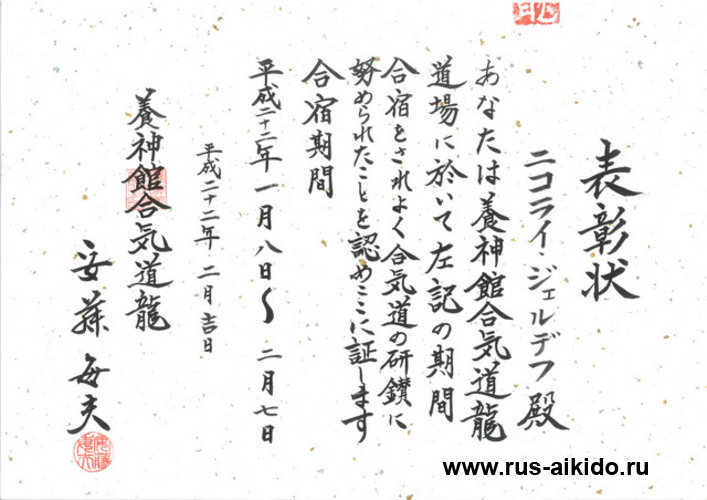 表彰状
ニコライ・ジェルデフ 殿
あなたは養神館合気道龍
道場に於いて左記の期間
合宿をされよく合気道の研鑽に
努められたことを認めここに証します
合宿期間
平成二十二年一月八日〜二月七日
平成二十二年 二月吉日
養神館合気道龍
安藤毎夫
www.rus-aikido.ru